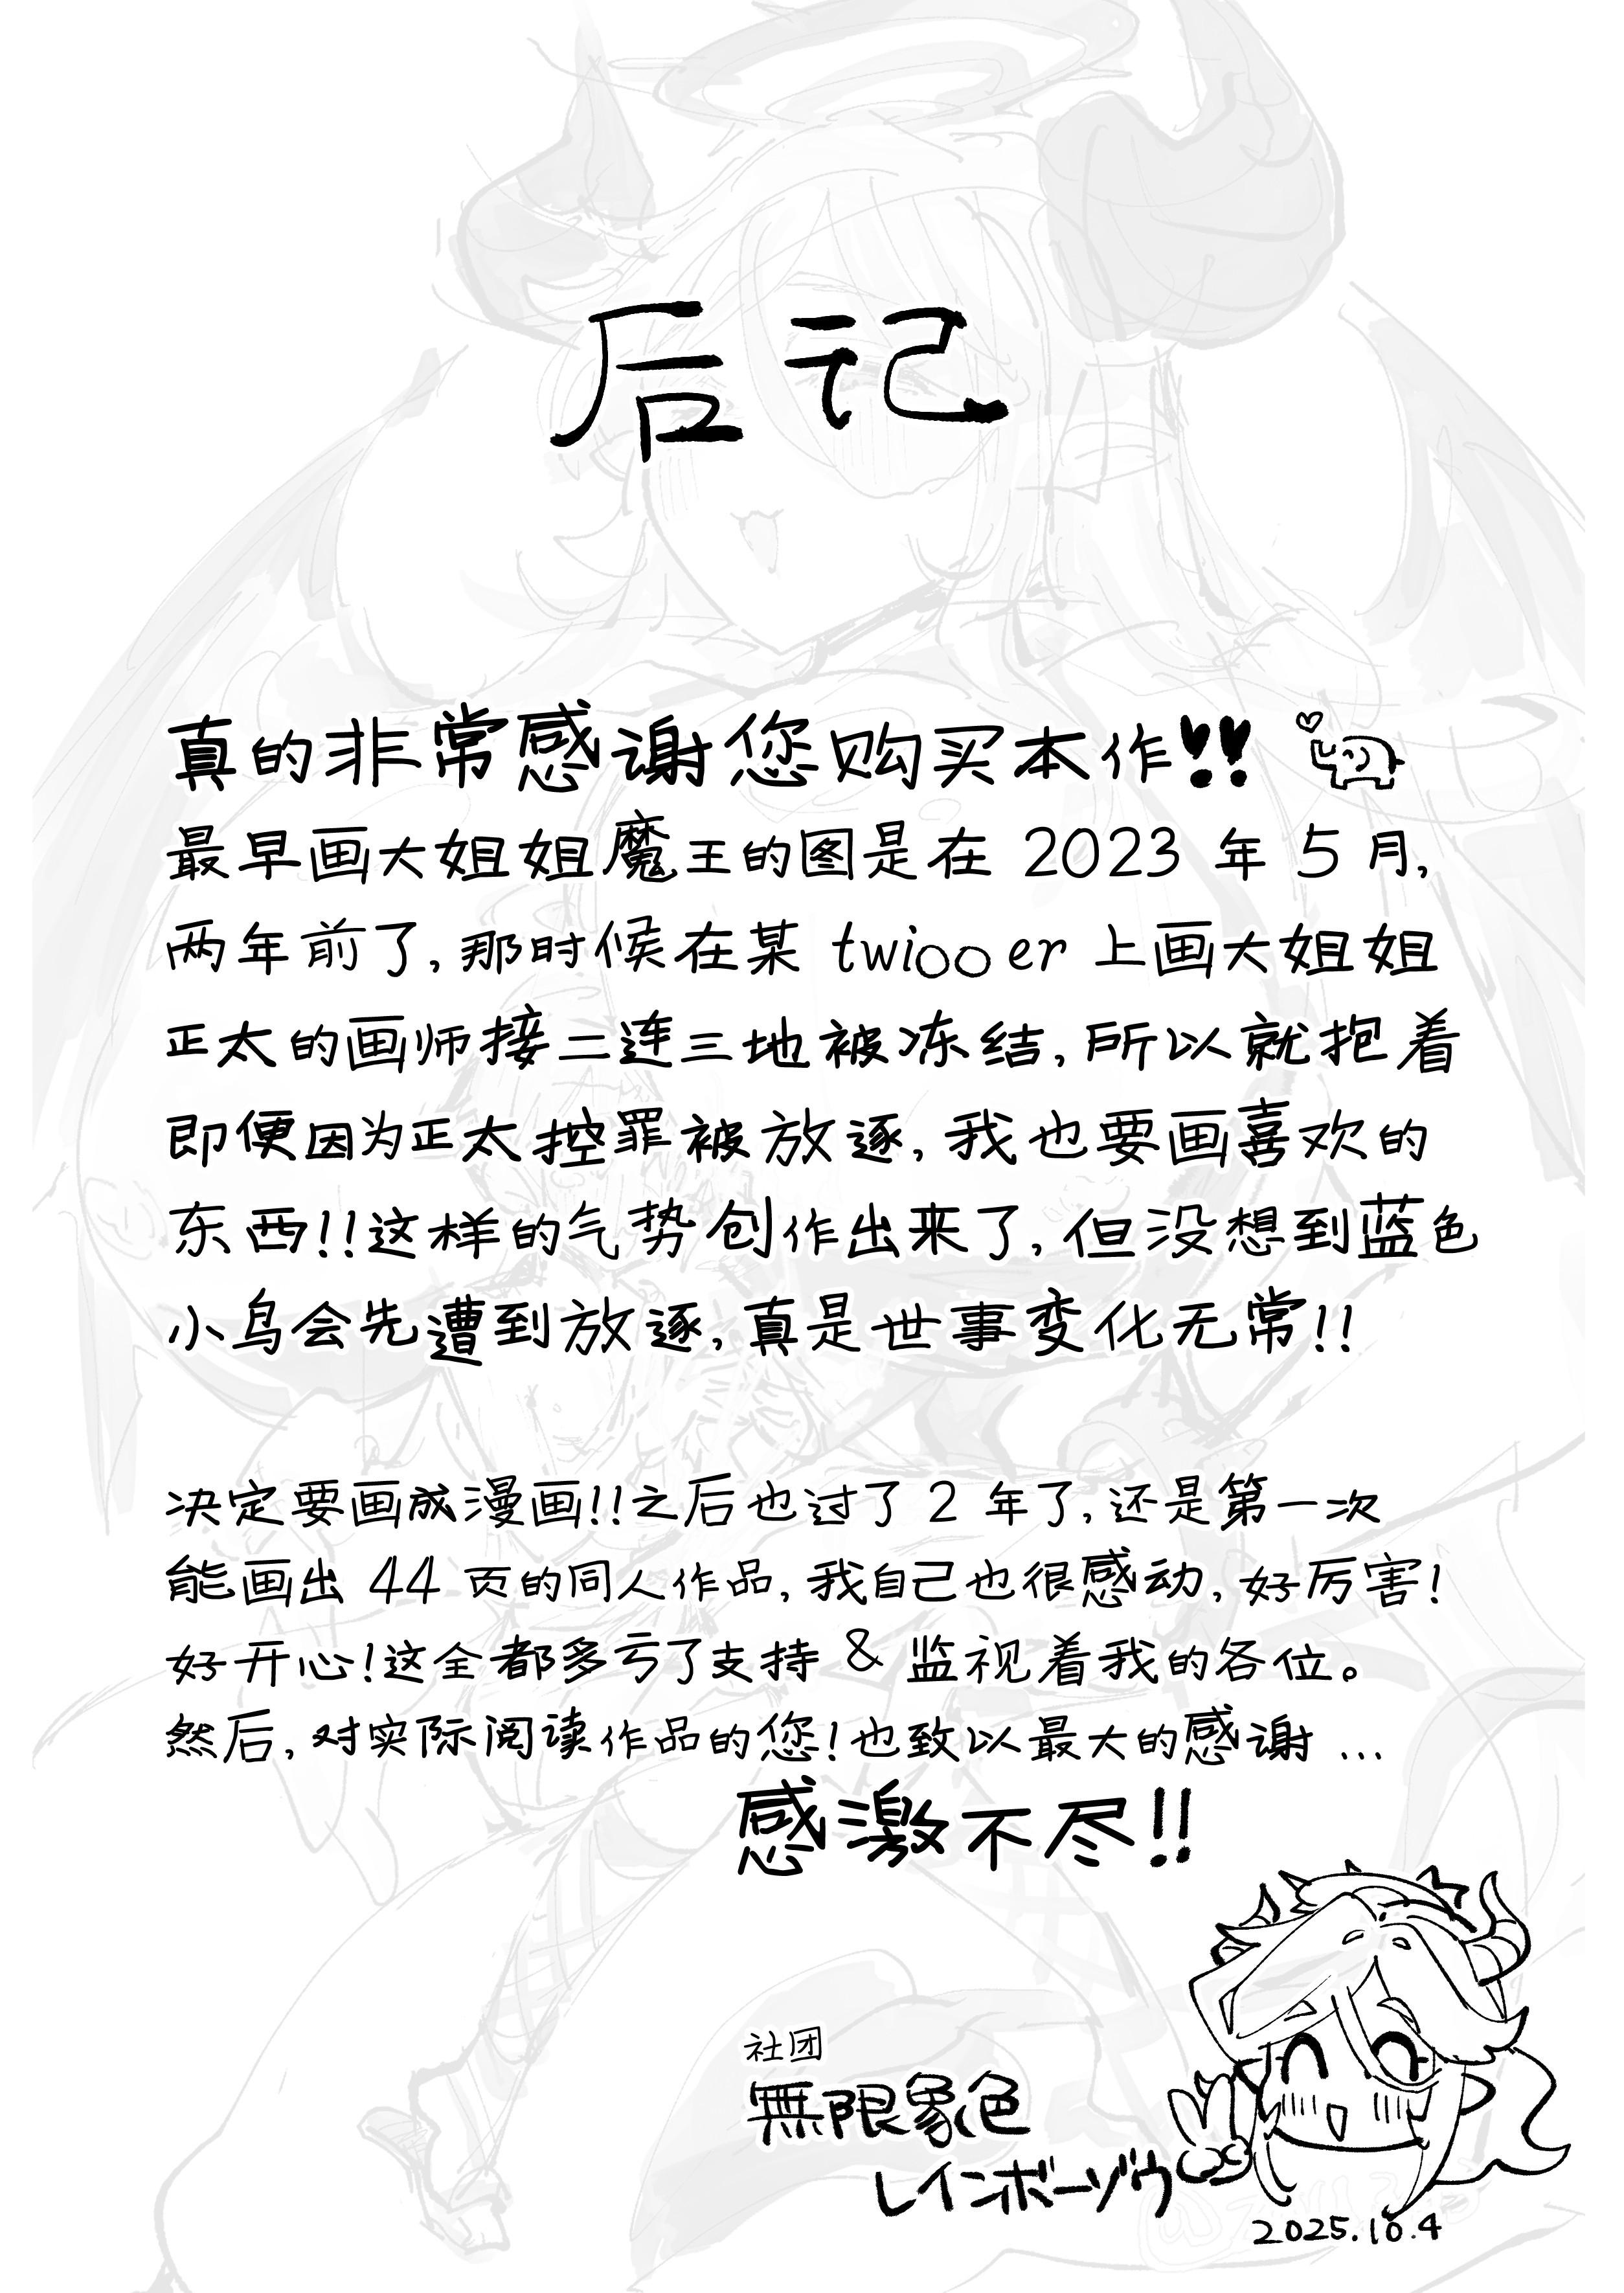 后记
真的非常感谢您购买本作!!
最早画大姐姐魔王的图是在 2023 年 5 月,
两年前了, 那时候在某 twi○○er 上画大姐姐
正太的画师接二连三地被冻结, 所以就抱着
即便因为正太控罪被放逐, 我也要画喜欢的
东西!!这样的气势创作出来了, 但没想到蓝色
小鸟会先遭到放逐, 真是世事变化无常!!
决定要画成漫画!!之后也过了 2 年了, 还是第一次
能画出 44 页的同人作品, 我自己也很感动, 好厉害!
好开心!这全都多亏了支持 & 监视着我的各位。
然后, 对实际阅读作品的您!也致以最大的感谢 ...
感激不尽!!
社团
無限象色
レインボーゾウ
2025.10.4